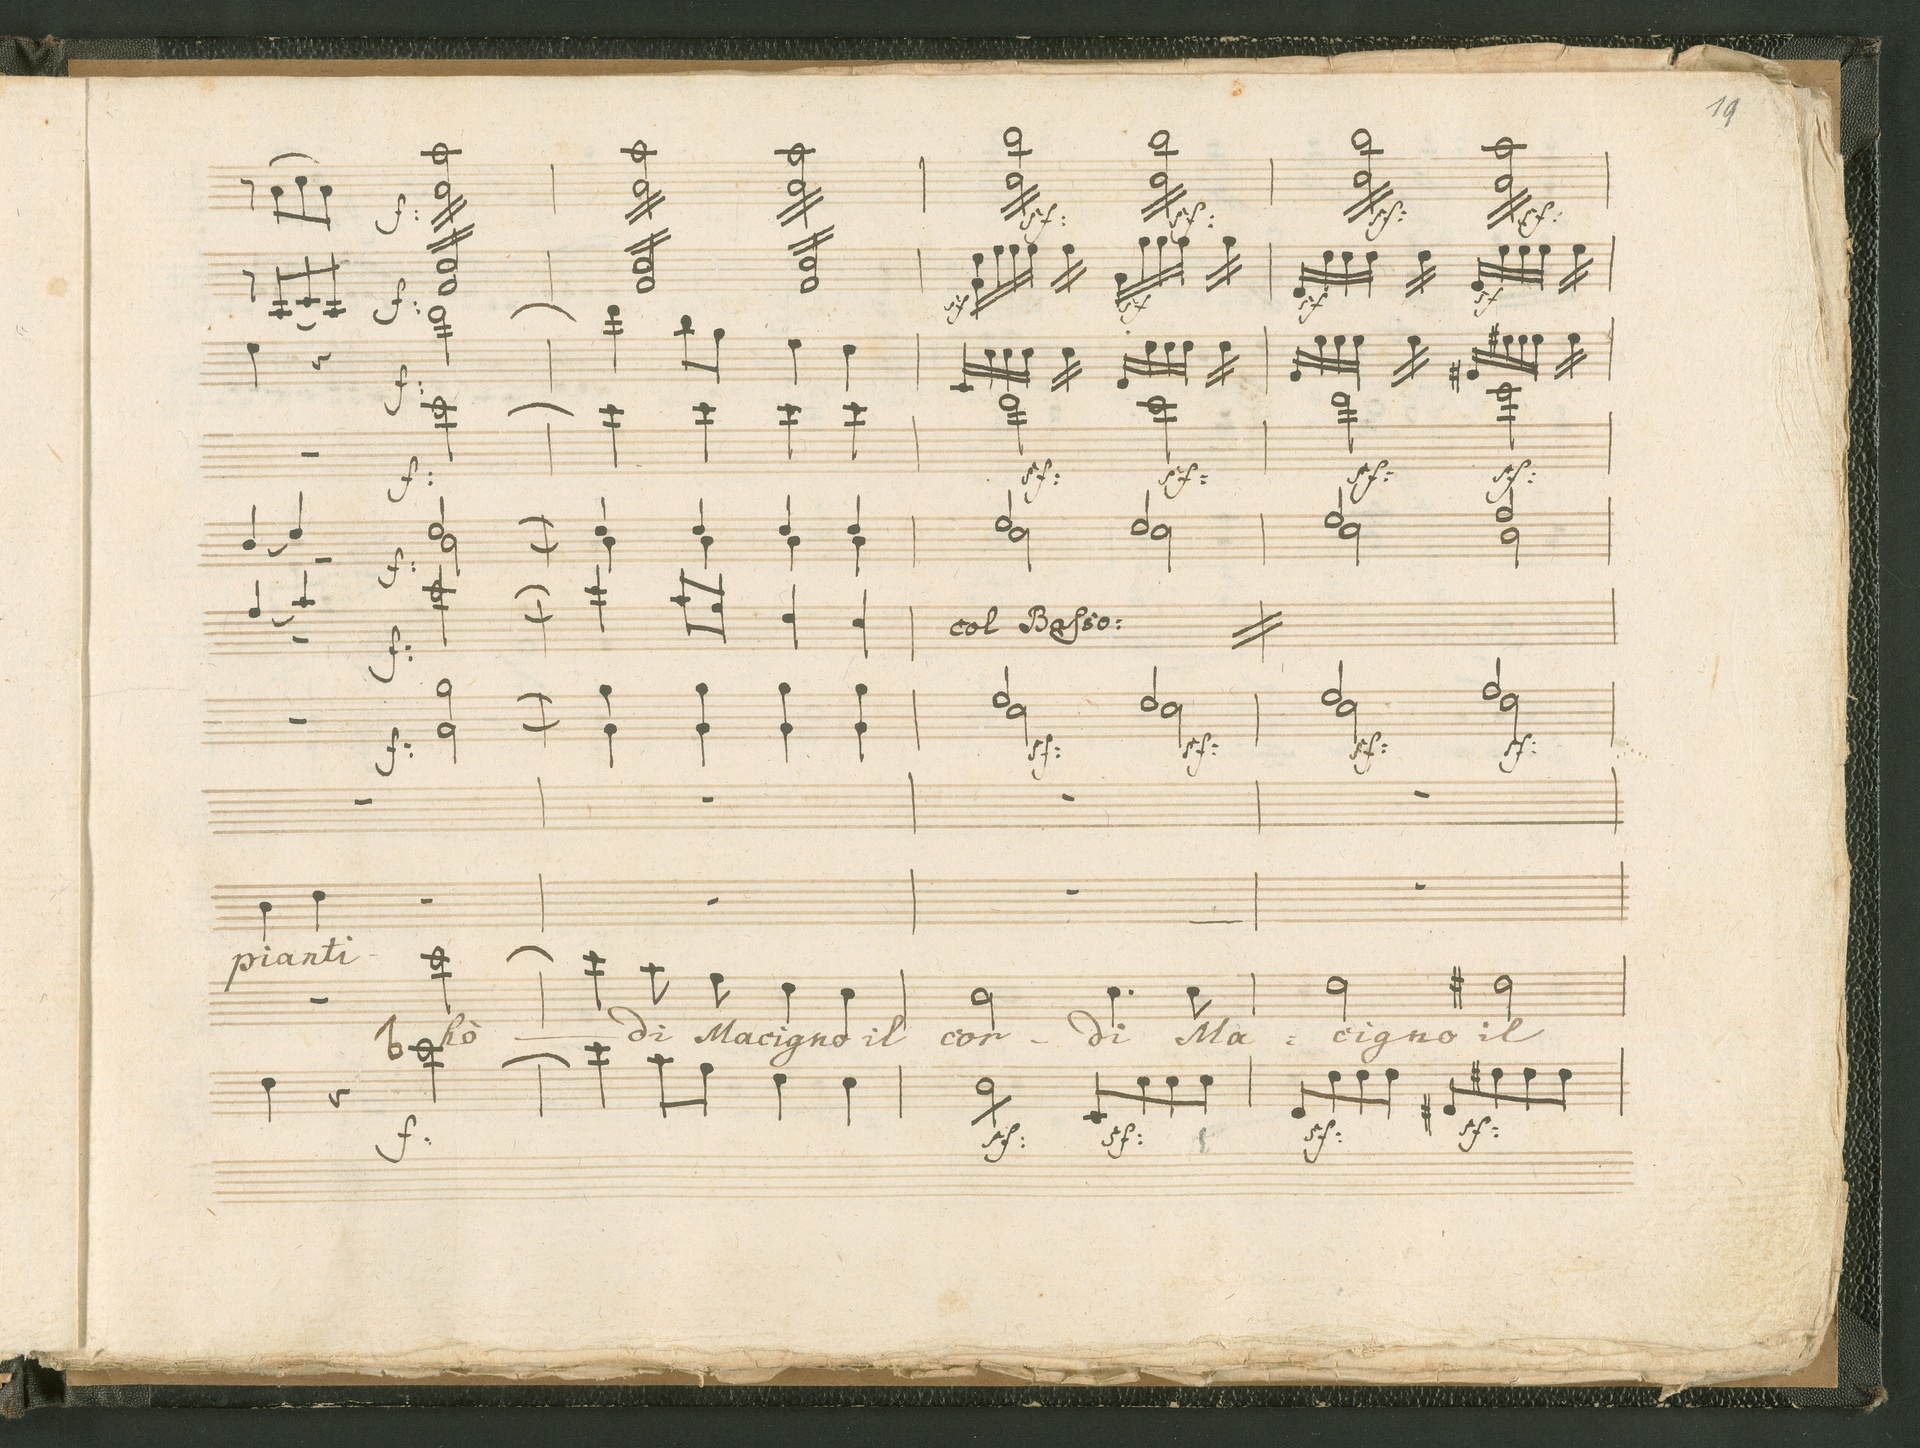 19
f:
sf: sf: sf: sf:
f:
sf sf sf sf
f:
f:
sf: sf: sf: sf:
f:
f:
col Basso:
f:
sf: sf: sf: sf:
pianti-
hò di Macigno il cor - di Ma = cigno il
f:
sf: sf: sf: sf: